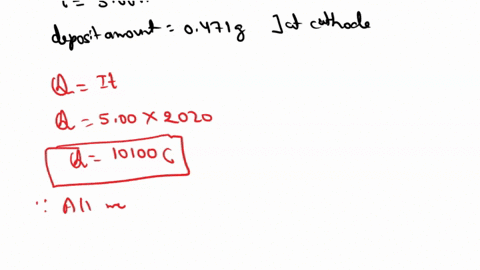 i = 5.00
deposit amount = 0.471g ] at cathode
Q = It
Q = 5.00 × 2020
Q = 10100 C
∵ All